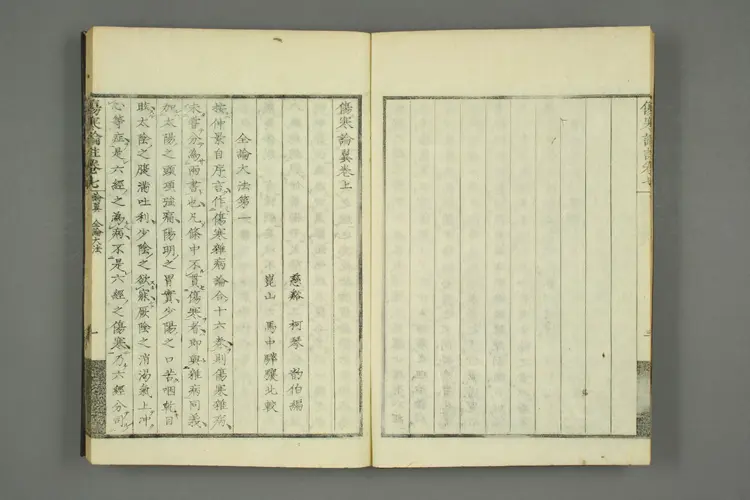 傷寒論註卷七
傷寒論翼卷上
慈谿 柯琴 韵伯編
崑山 馬中驊驤北較
全論大法第一
按仲景自序言作傷寒雜病論合十六卷則傷寒雜病
未嘗分為兩書也凡條中不貫傷寒者即與雜病同義
如太陽之頭項強痛陽明之胃實少陽之口苦咽乾目
眩太陰之腹滿吐利少陰之欲寐厥陰之消渴氣上冲
心等症是六經之為病不是六經之傷寒乃六經分司
傷寒論註卷七 論翼 全論大法 一